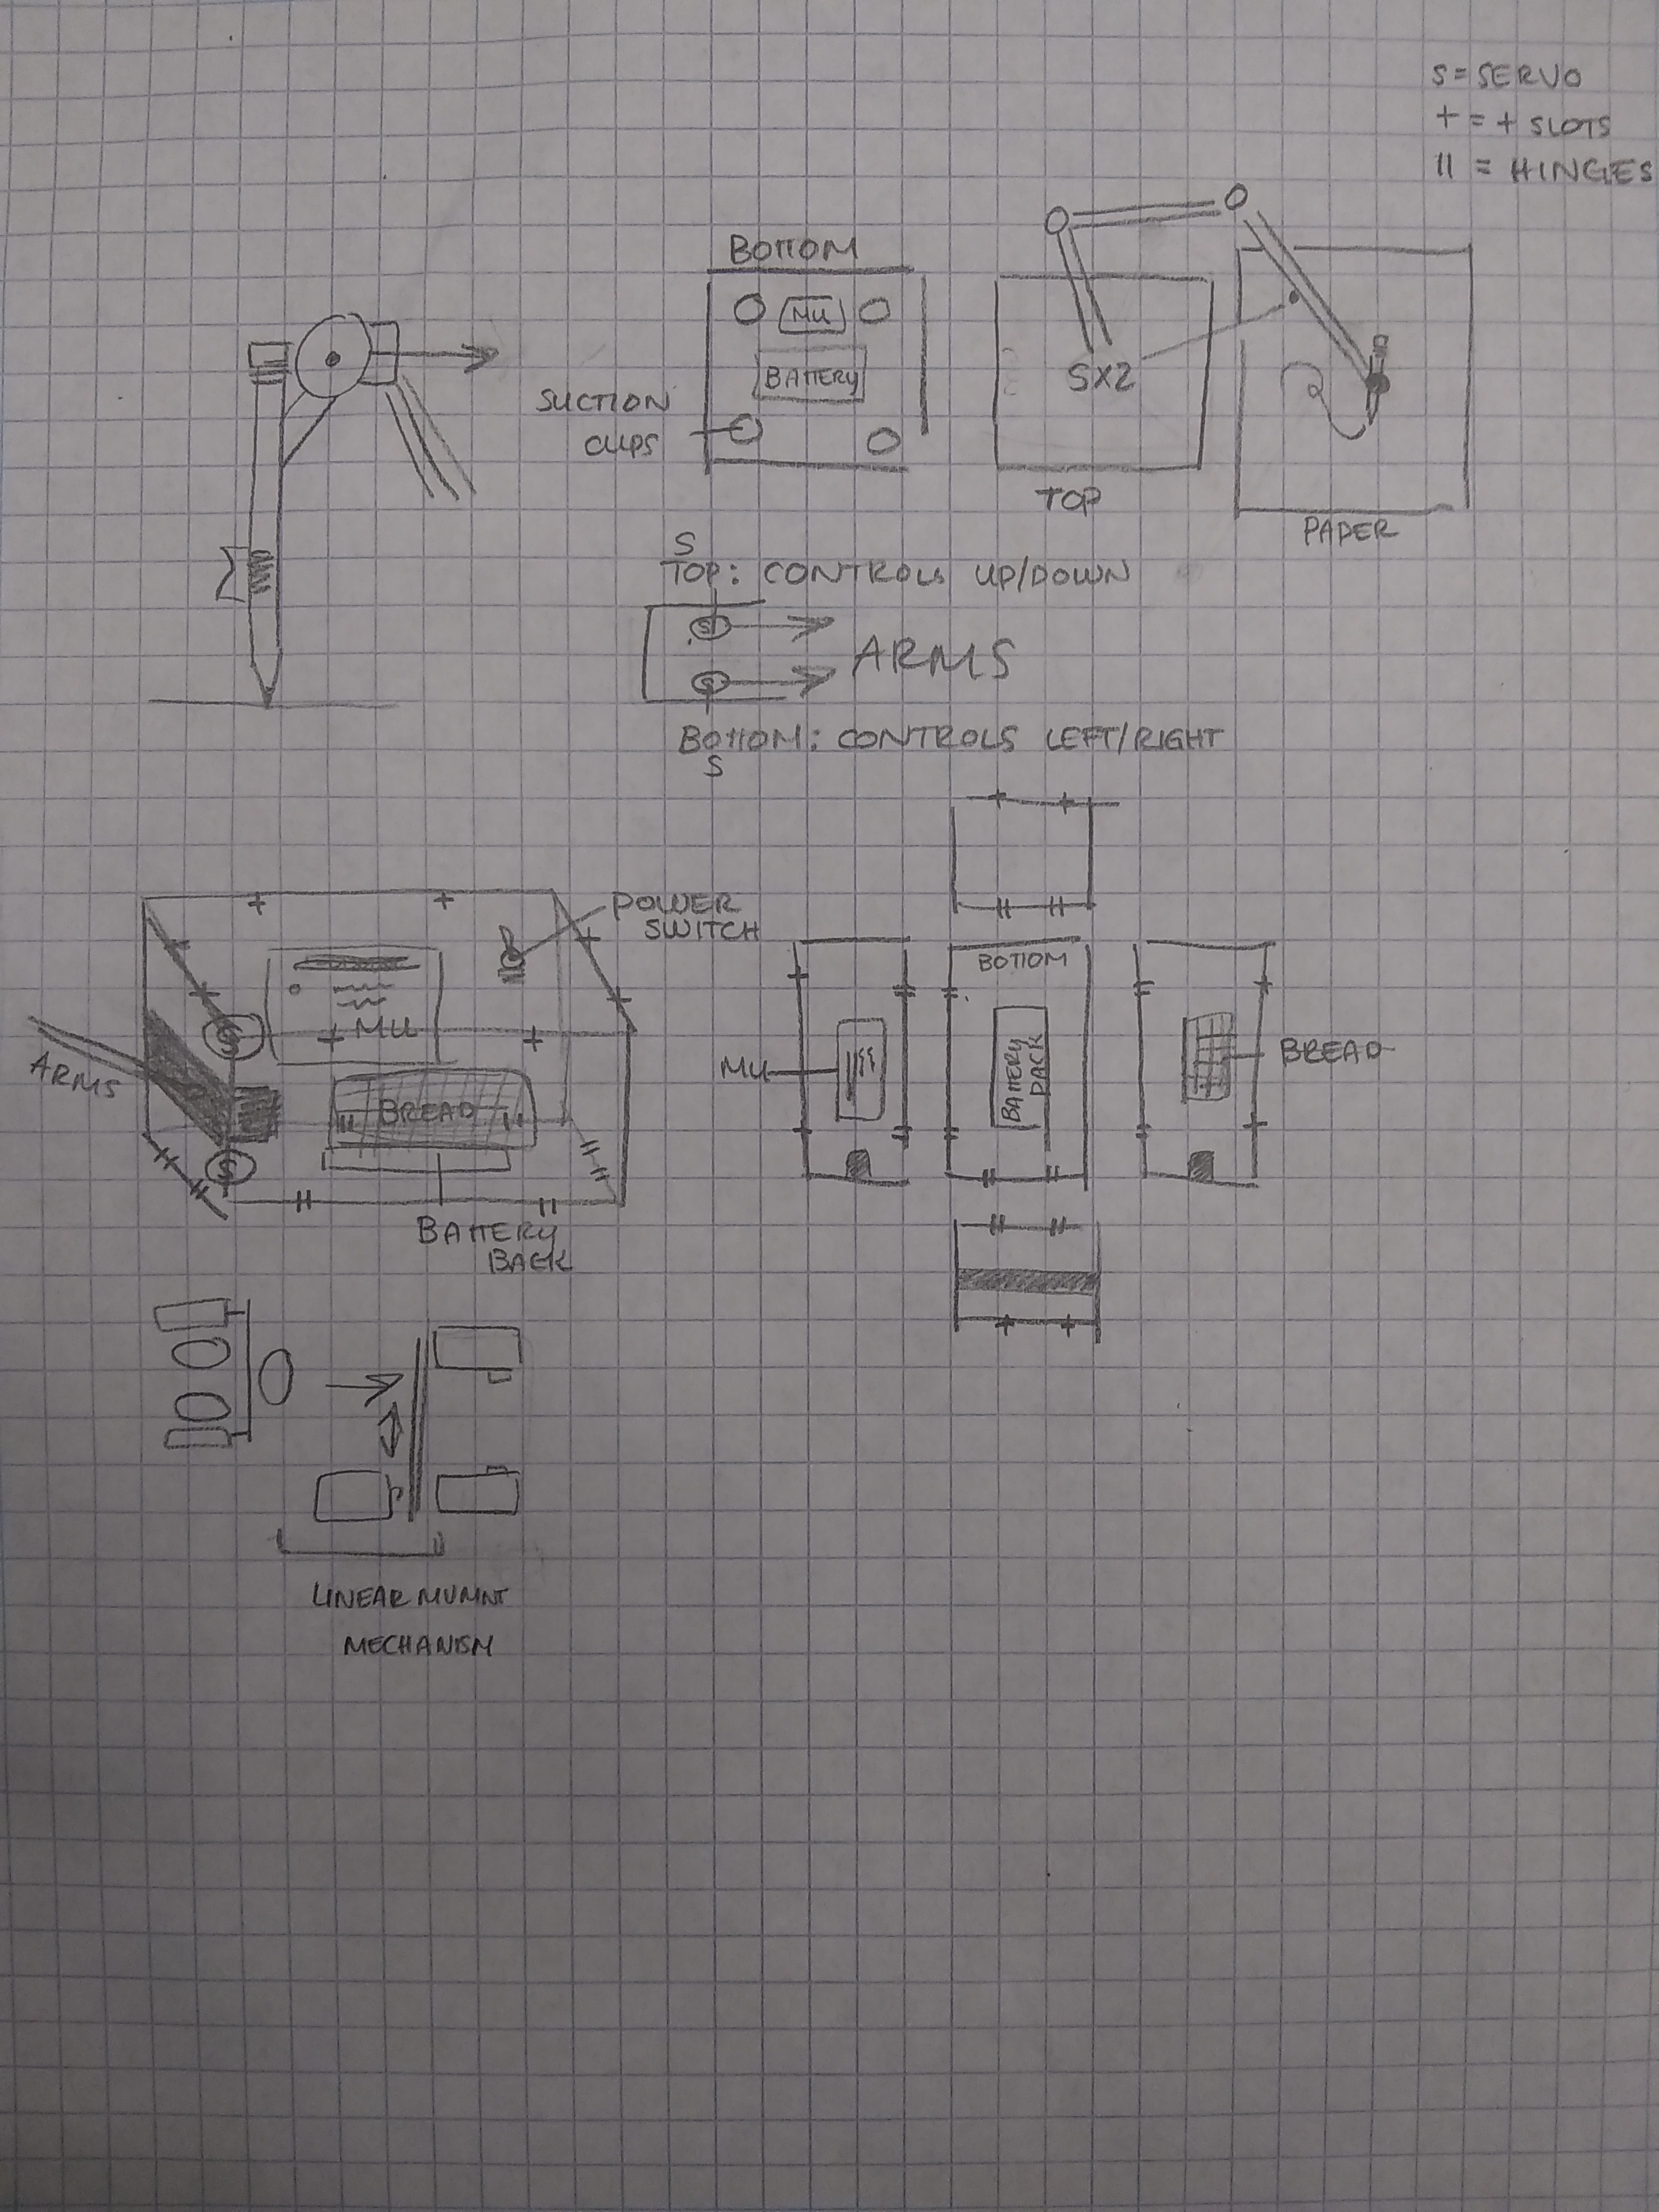 S = SERVO
+ = + SLOTS
|| = HINGES
BOTTOM
MU
BATTERY
SUCTION
CUPS
SX2
TOP
PAPER
S
TOP: CONTROLS UP/DOWN
S
ARMS
S
BOTTOM: CONTROLS LEFT/RIGHT
S
POWER
SWITCH
S
MU
ARMS
BREAD
S
BATTERY
BACK
BOTTOM
MU
BATTERY
PACK
BREAD
LINEAR MVMNT
MECHANISM